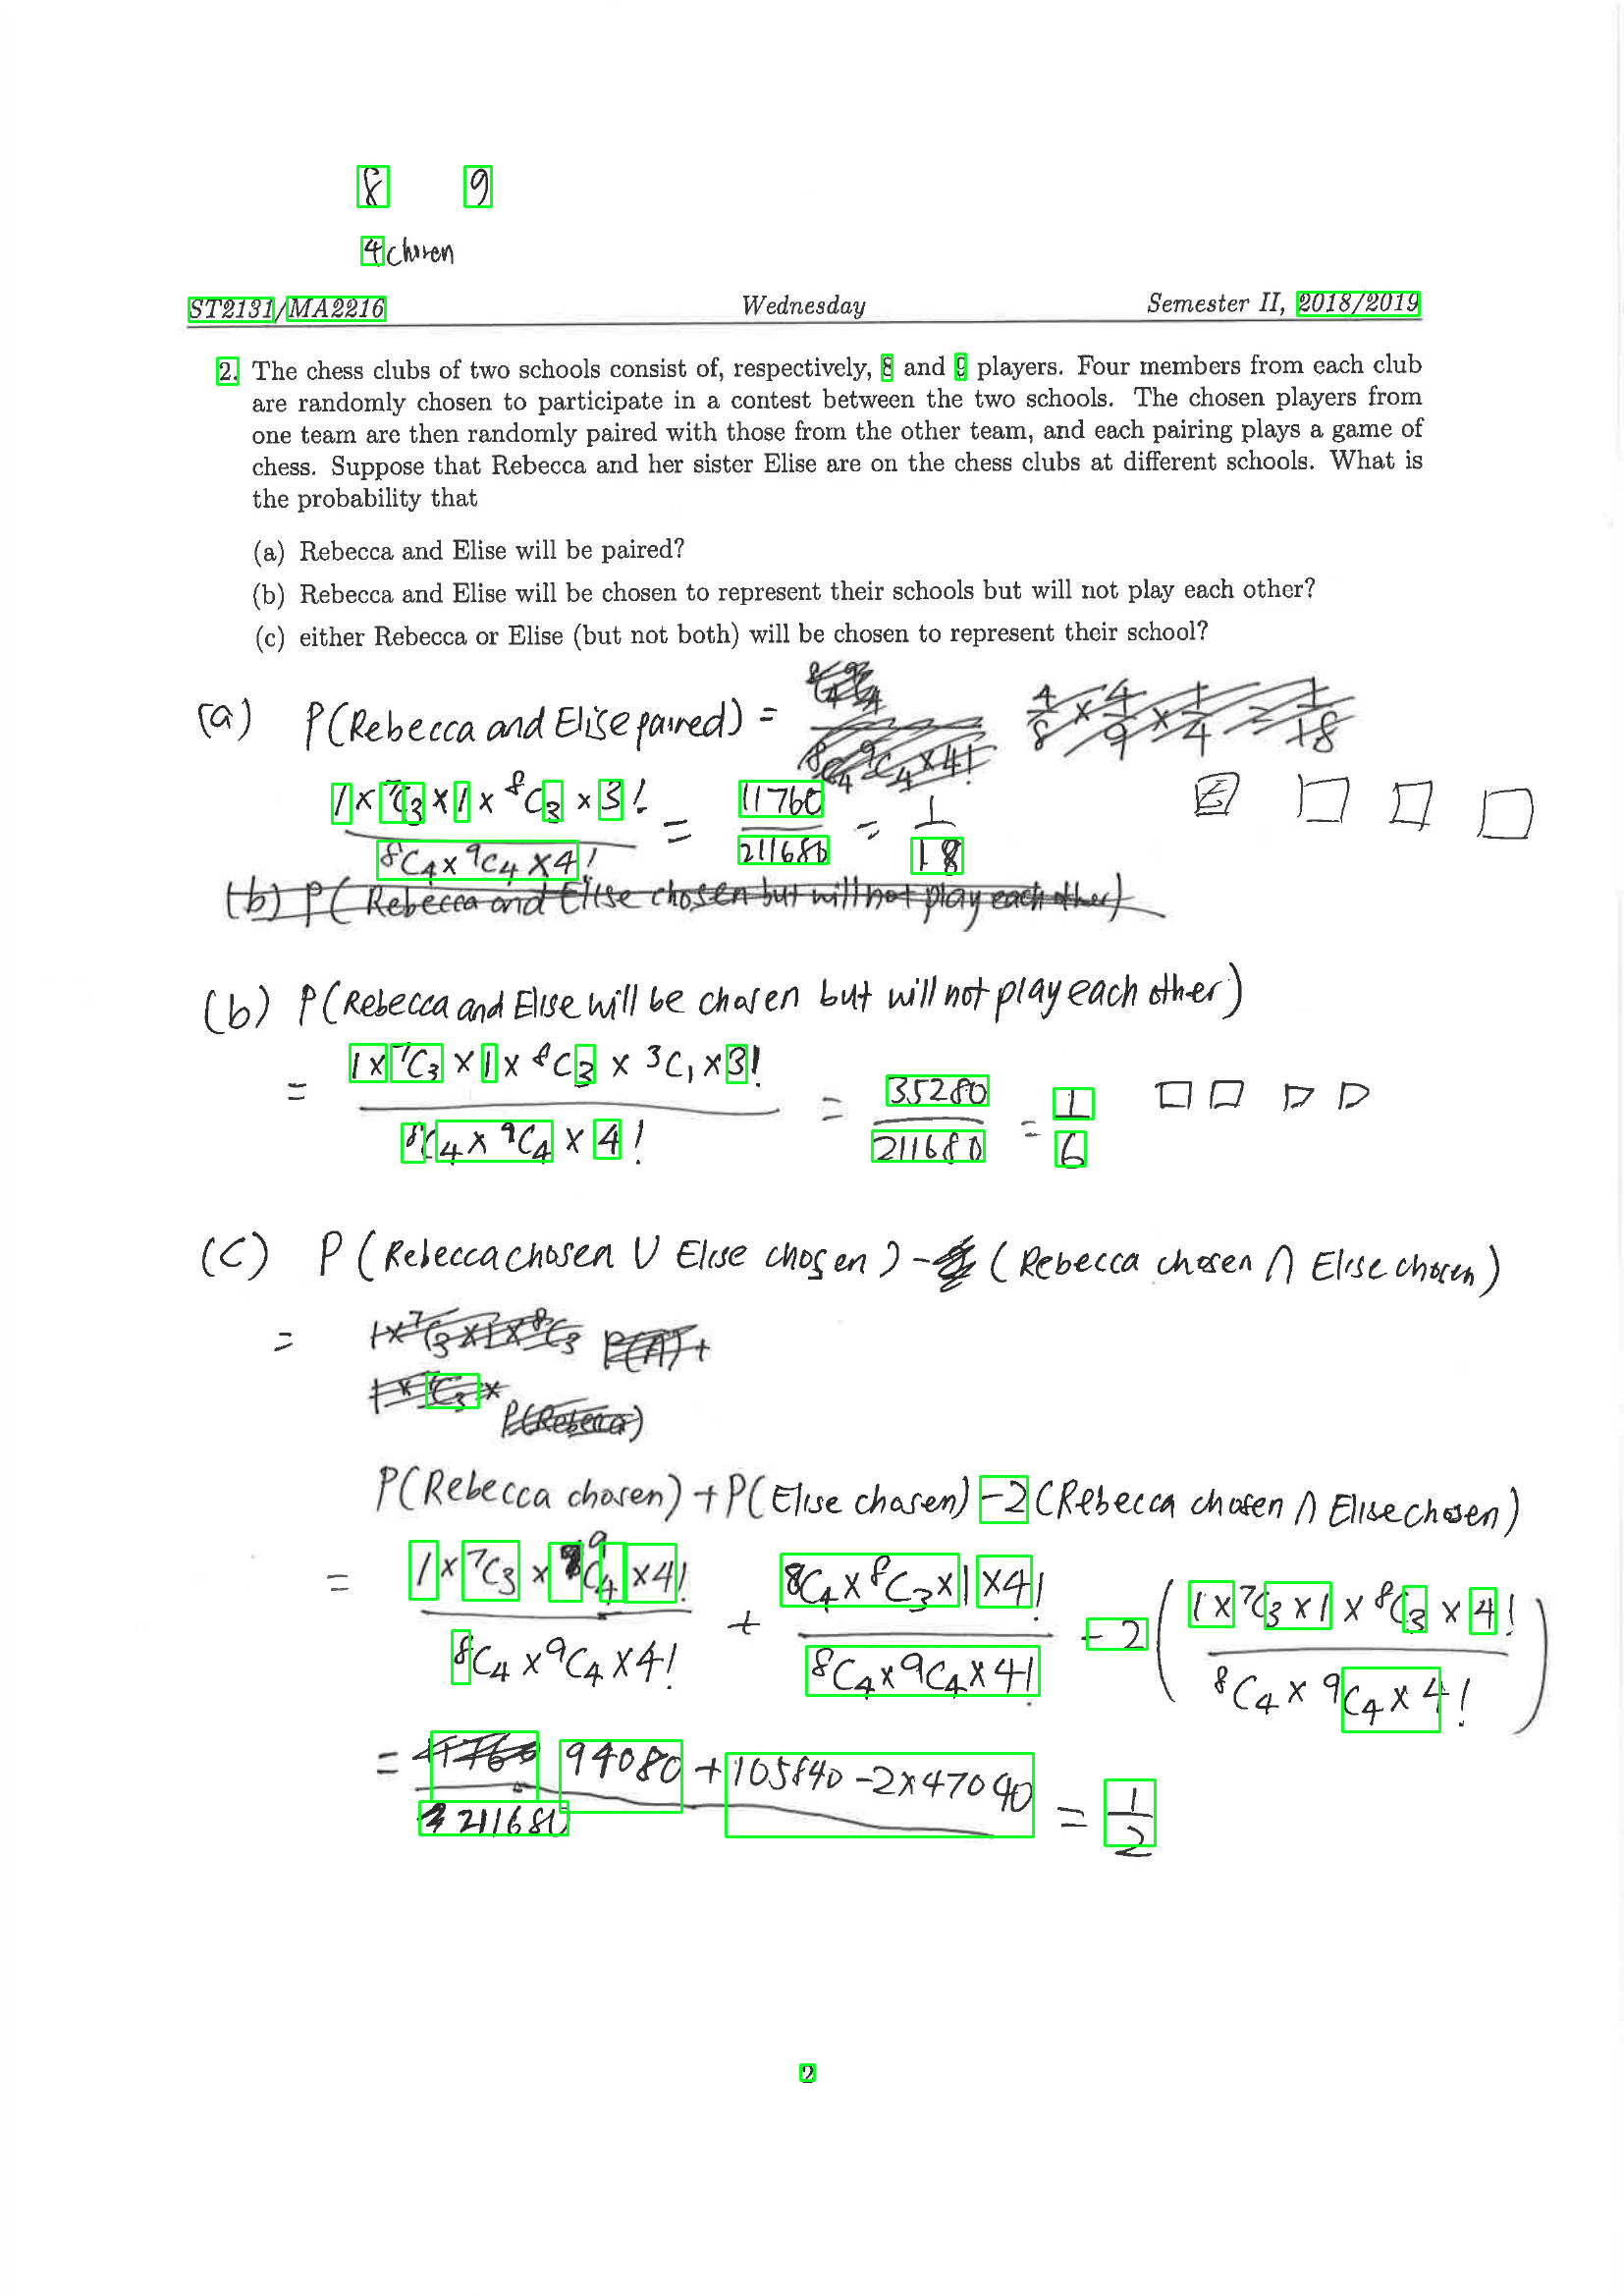 8 9
4 chosen
ST2131/MA2216 Wednesday Semester II, 2018/2019
2. The chess clubs of two schools consist of, respectively, 8 and 9 players. Four members from each club
are randomly chosen to participate in a contest between the two schools. The chosen players from
one team are then randomly paired with those from the other team, and each pairing plays a game of
chess. Suppose that Rebecca and her sister Elise are on the chess clubs at different schools. What is
the probability that
(a) Rebecca and Elise will be paired?
(b) Rebecca and Elise will be chosen to represent their schools but will not play each other?
(c) either Rebecca or Elise (but not both) will be chosen to represent their school?
(a) P(Rebecca and Elise paired) = 4/8 × 4/9 × 1/4 = 1/18
1 × ⁷C₃ × 1 × ⁸C₃ × 3! = 11760 = 1
⁸C₄ × ⁹C₄ × 4! 211680 18
(b) P(Rebecca and Elise chosen but will not play each other)
(b) P(Rebecca and Elise will be chosen but will not play each other)
1 × ⁷C₃ × 1 × ⁸C₃ × ³C₁ × 3!
= = 35280 = 1
⁸C₄ × ⁹C₄ × 4! 211680 6
(c) P(Rebecca chosen ∪ Elise chosen) - (Rebecca chosen ∩ Elise chosen)
= 1×⁷C₃×1×⁸C₃ P(A)+
1×⁷C₃×
P(Rebecca)
P(Rebecca chosen) + P(Elise chosen) - 2(Rebecca chosen ∩ Elise chosen)
= 1 × ⁷C₃ × ⁹C₄ × 4! + ⁸C₄ × ⁸C₃ × 1 × 4! - 2(1 × ⁷C₃ × 1 × ⁸C₃ × 4!
⁸C₄ × ⁹C₄ × 4! ⁸C₄ × ⁹C₄ × 4! ⁸C₄ × ⁹C₄ × 4!)
= 94080 + 105840 - 2×47040 = 1
211680 2
2